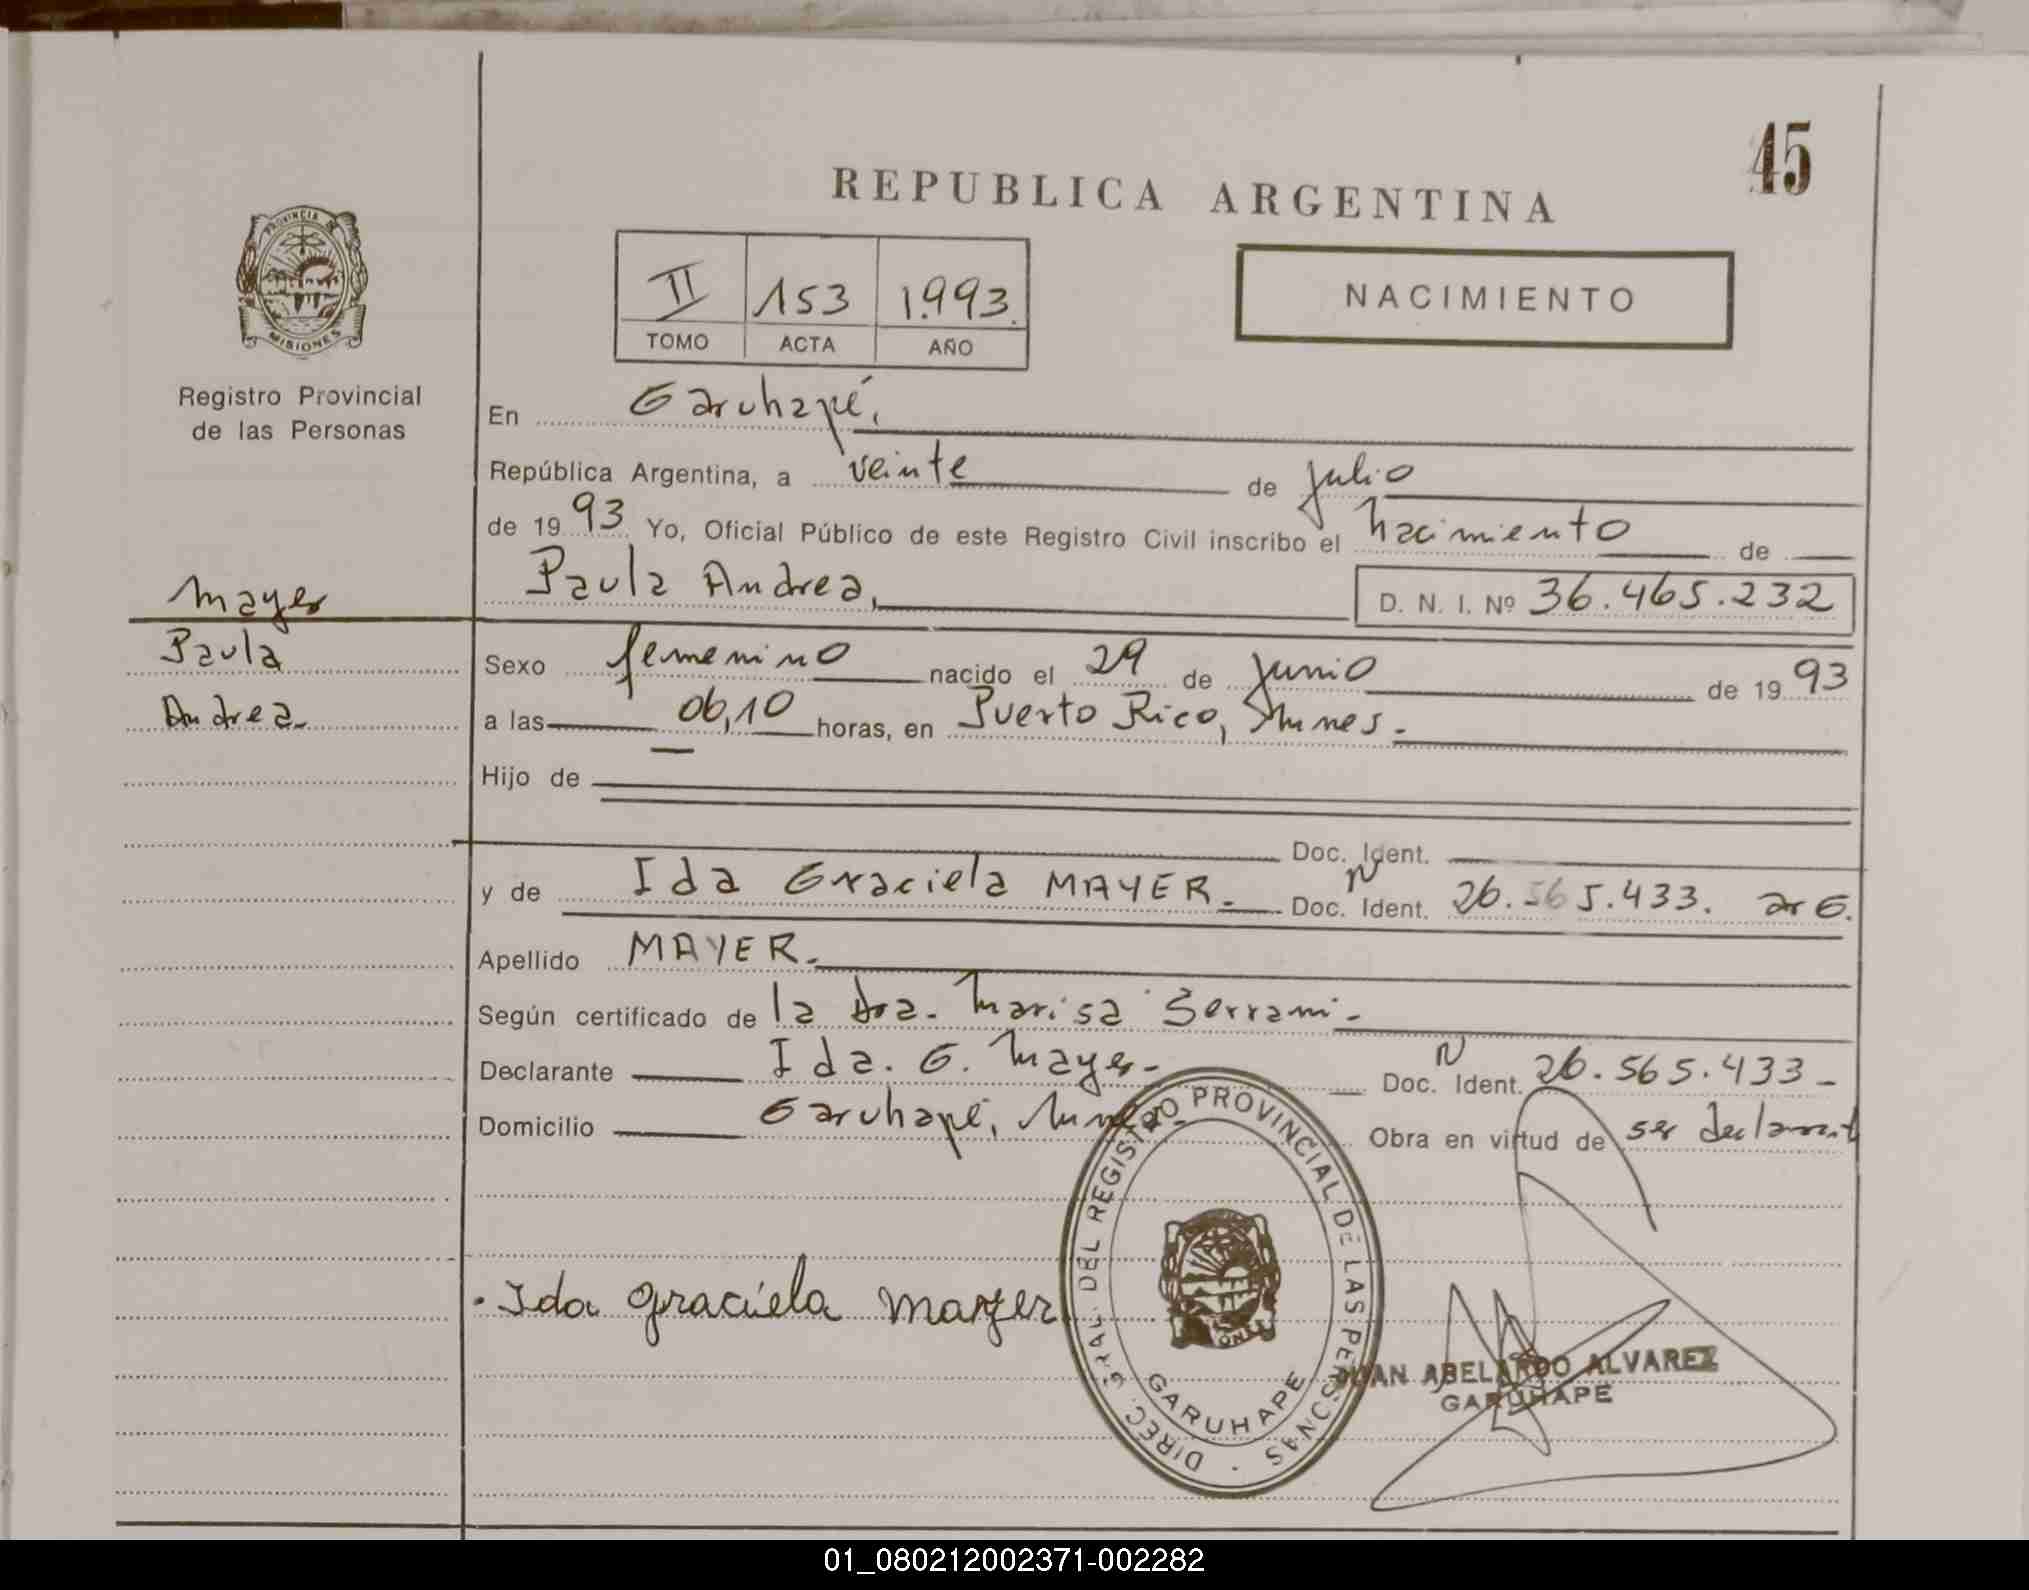 45
REPUBLICA ARGENTINA
PROVINCIA DE
MISIONES
Registro Provincial
de las Personas
II 153 1.993.
TOMO ACTA AÑO
NACIMIENTO
En Garuhapé,
República Argentina, a veinte de julio
de 1993 Yo, Oficial Público de este Registro Civil inscribo el nacimiento de
Paula Andrea, D. N. I. Nº 36.465.232
Mayer
Paula
Andrea.
Sexo femenino nacido el 29 de junio de 1993
a las 06,10 horas, en Puerto Rico, Mnes.-
Hijo de
Doc. Ident.
y de Ida Graciela MAYER.- Doc. Ident. N 26.565.433. arG.
Apellido MAYER.-
Según certificado de la Dra. Marisa Serrani-
Declarante Ida. G. Mayer- Doc. Ident. N 26.565.433-
Domicilio Garuhapé, Mnes.- Obra en virtud de ser declarant
Ida Graciela Mayer
DIREC. GRAL. DEL REGISTRO PROVINCIAL DE LAS PERSONAS
GARUHAPE
JUAN ABELARDO ALVAREZ
GARUHAPE
01_080212002371-002282